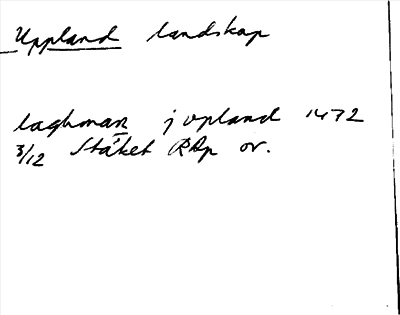 Uppland landskap
laghman j upland 1472
3/12 Stäket RAp or.